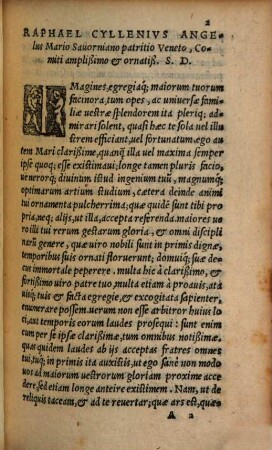 2
RAPHAEL CYLLENIVS ANGE⸗
lus Mario Sauorniano patritio Veneto, Co⸗
miti amplißimo & ornatiß. S. D.
IMagines, egregiaq́; maiorum tuorum
facinora, tum opes, ac uniuersæ fami⸗
liæ uestræ splendorem ita pleriq; ad⸗
mirari solent, quasi hæc te sola uel illu
strem efficiant, uel fortunatum. ego au
tem Mari clarißime, quanq́; illa uel maxima semper
ipse quoq; esse existimaui, longe tamen pluris facio,
uenerorq́; diuinum istud ingenium tuũ, magnumq́;
optimarum artium studium, cætera deinde animi
tui ornamenta pulcherrima; quæ quidẽ sunt tibi pro
pria, neq; alijs, ut illa, accepta referenda. maiores ue⸗
ro illi tui rerum gestarum gloria, & omni discipli
narũ genere, quæ uiro nobili sunt in primis dignæ,
temporibus suis ornati floruerunt; domuiq́; suæ de⸗
cus immortale peperere. multa hic à clarißimo, &
fortißimo uiro patre tuo, multa etiam à proauis, atá
uisq́; tuis & facta egregie, & excogitata sapienter,
enumerare possem. uerum non esse arbitror huius lo
ci, aut temporis eorum laudes prosequi: sunt enim
cum per se ipsæ clarißimæ, tum omnibus notißimæ.
quas quidem laudes ab ijs acceptas fratres omnes
tui, tuq́; in primis ita auxistis, ut ego uos non modo
uos ad maiorum uestrorum gloriam proxime acce⸗
dere, sed etiam longe anteire existimem. Nam, ut de
reliquis taceam, & ad te reuertar; quæ ars est, quæ⸗
A 2